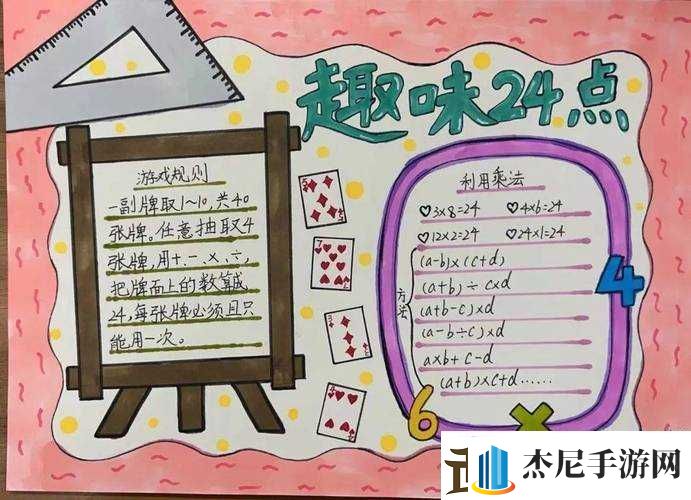 趣味24点
游戏规则
一副牌取1~10,共40
张牌。任意抽取4
张牌,用+、-、×、÷,
把牌面上的数算成
24,每张牌必须且只
能用一次。
利用乘法
♡3×8=24 ♡4×6=24
♡12×2=24 ♡24×1=24
方法
(a-b)×(c+d)
(a+b)÷c×d
(a+b-c)×d
(a-b÷c)×d
a×b+c-d
(a+b)×c+d……
4
6
×
杰尼手游网